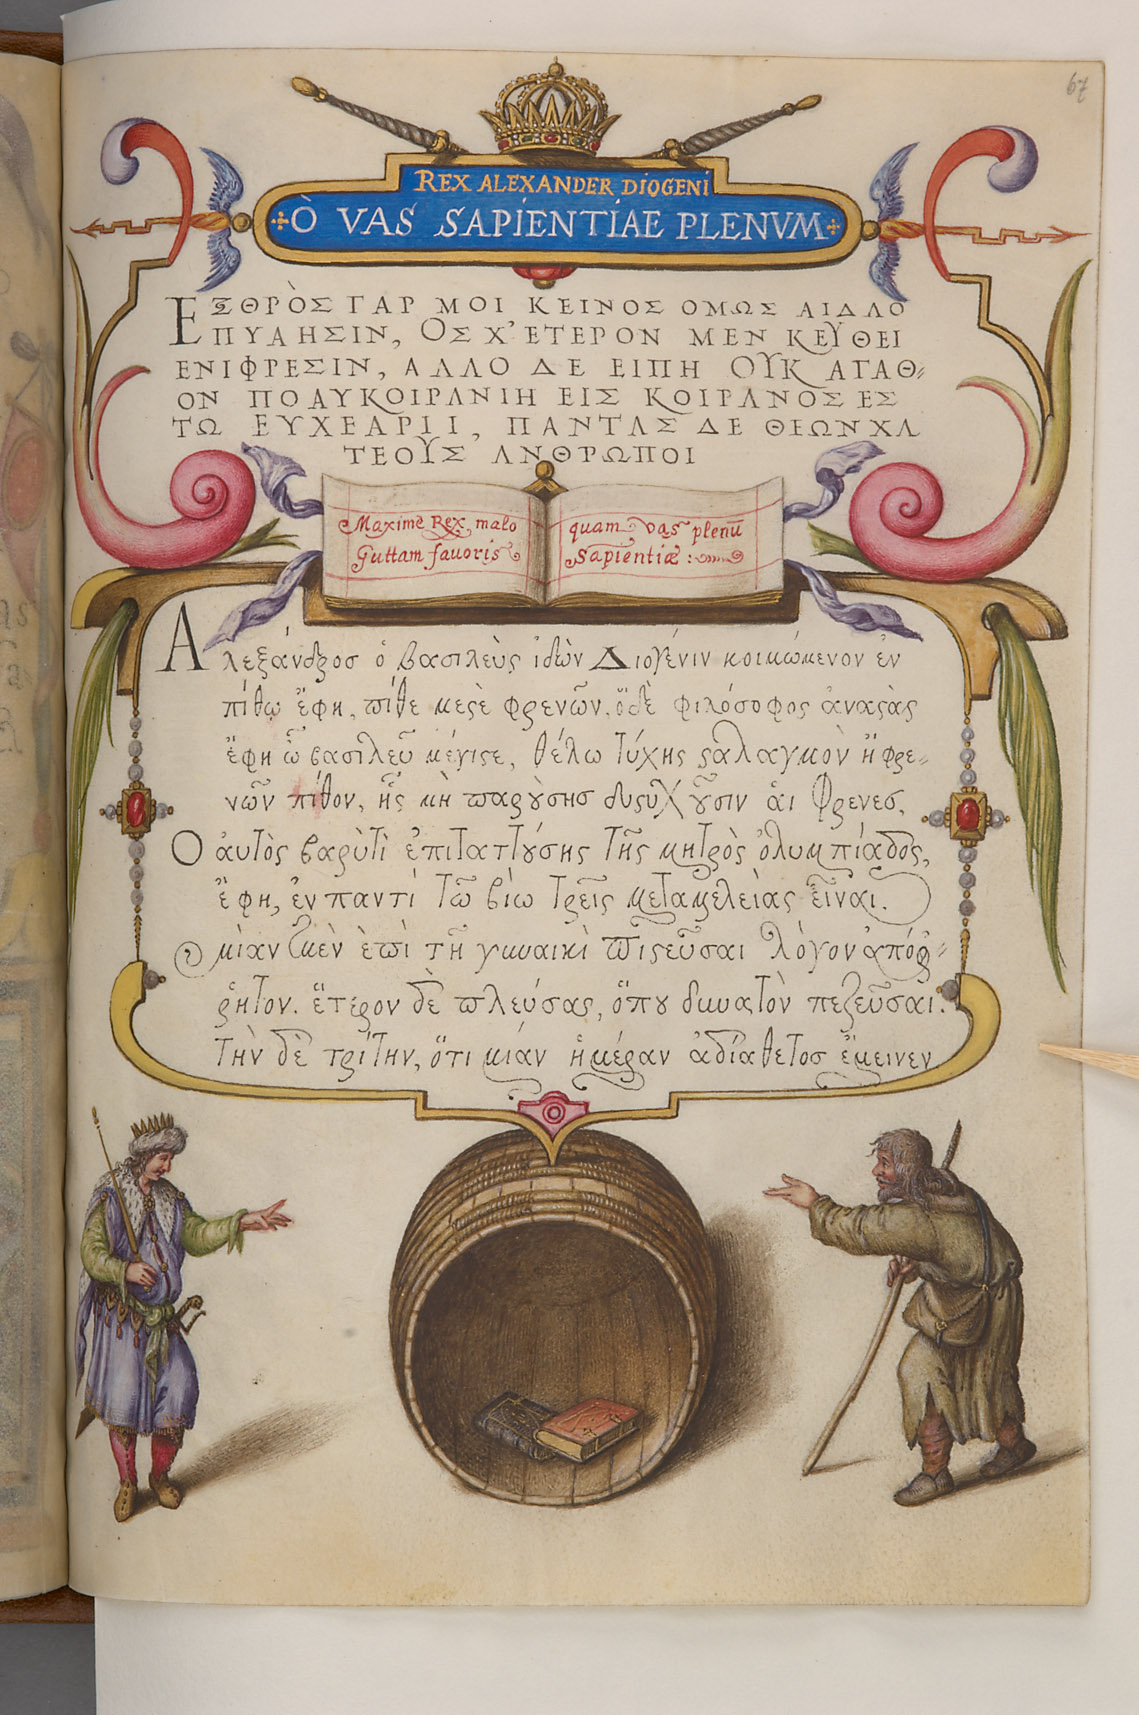 67
REX ALEXANDER DIOGENI
Ò VAS SAPIENTIAE PLENVM
ΕΞΘΡῸΣ ΓΑΡ ΜΟΙ ΚΕΙΝΟΣ ΟΜΩΣ ΑΙΔΛΟ
ΠΥΛΗΣΙΝ, ΟΣ Χ' ΕΤΕΡΟΝ ΜΕΝ ΚΕΥΘΕΙ
ΕΝΙΦΡΕΣΙΝ, ΑΛΛΟ ΔΕ ΕΙΠΗ ΟΥΚ ΑΓΑΘ-
ΟΝ ΠΟΛΥΚΟΙΡΑΝΙΗ ΕΙΣ ΚΟΙΡΑΝΟΣ ΕΣ
ΤΩ ΕΥΧΕΑΡΙΙ, ΠΑΝΤΑΣ ΔΕ ΘΕΩΝΧΑ
ΤΕΟΥΣ ΑΝΘΡΩΠΟΙ
Maxime Rex, malo
Guttam fauoris
quam vas plenū
Sapientiæ :
Ἀλεξάνδρος ὁ βασιλεὺς ἰδὼν Διογένιν κοιμώμενον ἐν
πίθῳ ἔφη, πίθε μεςὲ φρενῶν, ὅδὲ φιλόσοφος ἀναςὰς
ἔφη ὦ βασιλεῦ μέγιςε, θέλω τύχης ςαλαγμὸν ἢ φρε-
νῶν πίθον, ἧς μὴ παρȣ́σης δυςυχȣ͂σιν ἁι φρενες,
Ο ἀυτὸς βαρὺτι ἐπιταττȣ́σης τῆς μητρὸς ὀλυμπίαδος,
ἔφη, ἐν παντὶ τῶ βίω τρεῖς μεταμελείας εἶναι.
μίαν μὲν ἐπὶ τῆ γυναικὶ πιςεῦσαι λόγον ἀπόῤ-
ῥητον. ἕτερον δὲ πλεύσας, ὅπȣ δυνατὸν πεζεῦσαι.
τὴν δὲ τρίτην, ὅτι μίαν ἡμέραν ἀδίαθετος ἔμεινεν